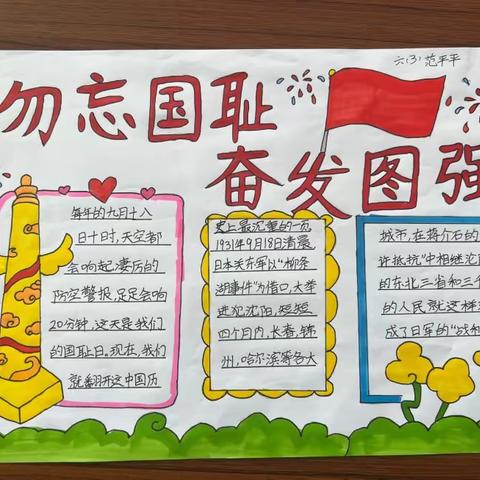 六(3)范平平
勿忘国耻
奋发图强
每年的九月十八
日十时,天空都
会响起凄厉的
防空警报,足足会响
20分钟,这天是我们
的国耻日。现在,我们
就翻开这中国历
史上最沉重的一页
1931年9月18日清晨
日本关东军以“柳条
湖事件”为借口,大举
进犯沈阳,短短
四个月内,长春,锦
州,哈尔滨等各大
城市,在蒋介石的
许抵抗“中相继沦
的东北三省和三
的人民就这样
成了日军的“战利